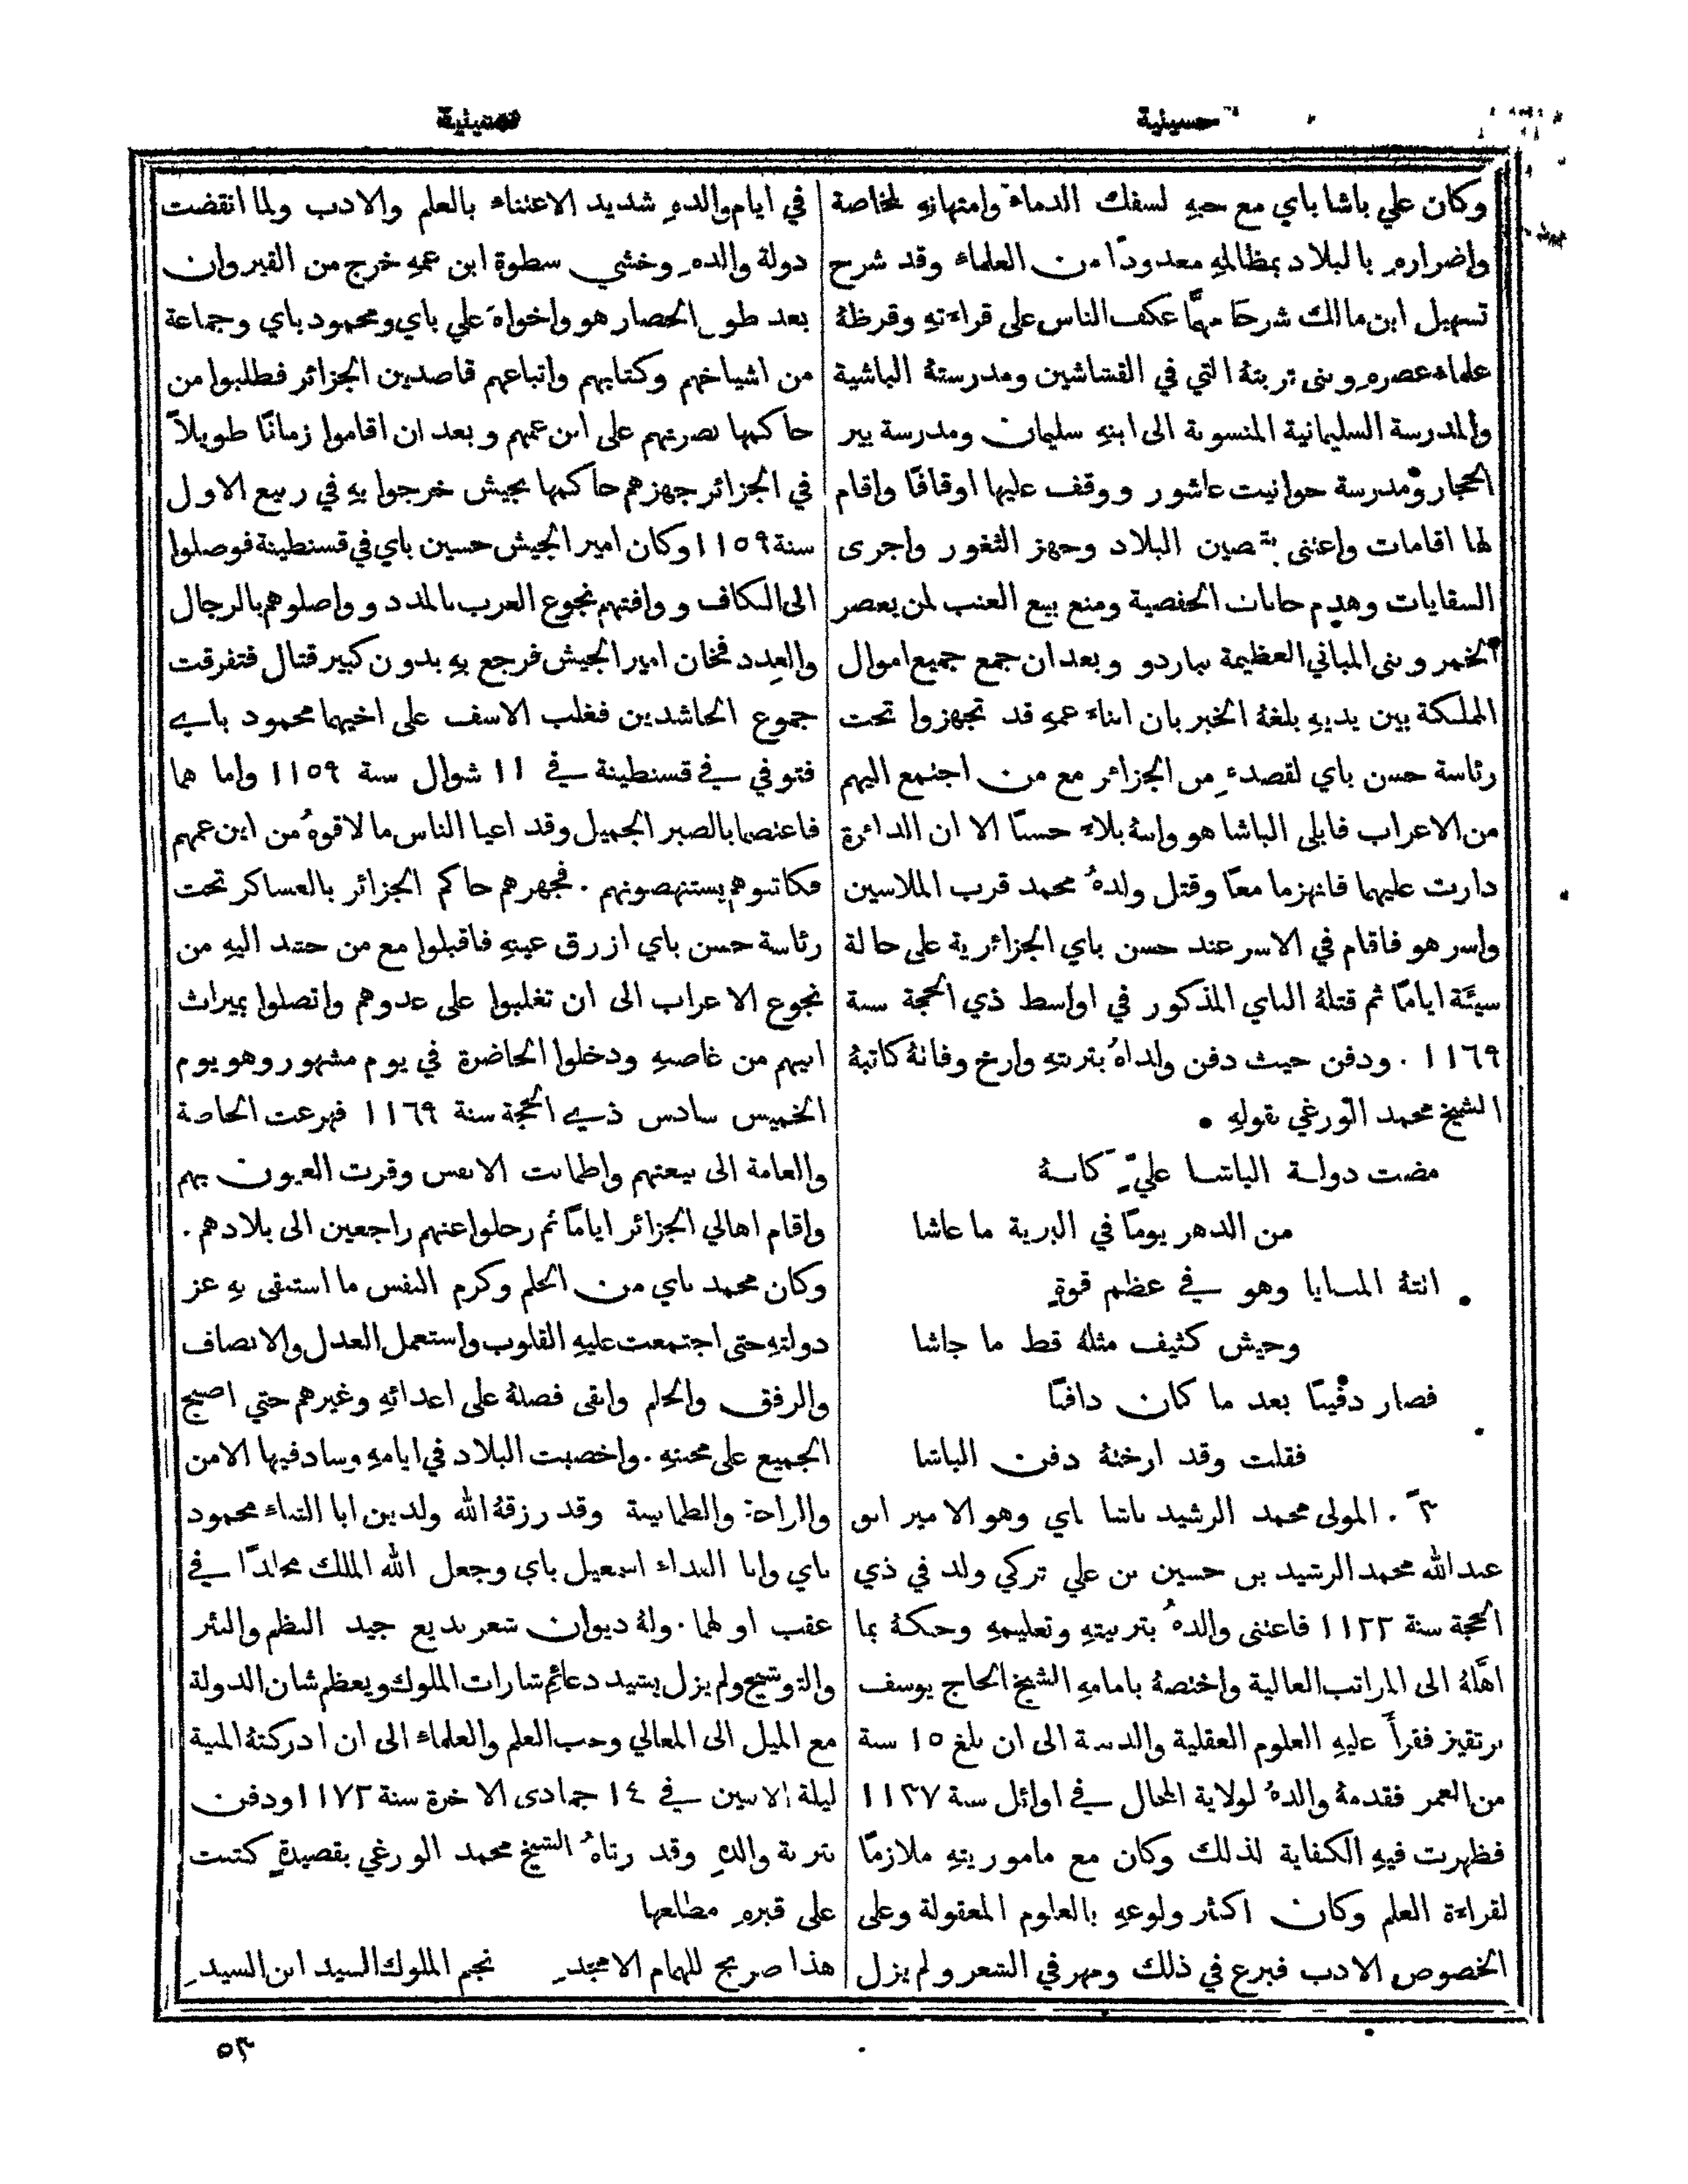 حسينية
حسينية
وكان علي باشا باي مع حبهِ لسفك الدماءِ وامتهانهِ للخاصة
واضرارهِ بالبلاد بمظالمهِ معدودًا من العلماء وقد شرح
تسهيل ابن مالك شرحًا مهمًّا عكف الناس على قراءتهِ وقرظهُ
علماء عصرهِ وبنى تربتهُ التي في القشاشين ومدرستهُ الباشية
والمدرسة السليمانية المنسوبة الى ابنهِ سليمان ومدرسة بير
الحجار ومدرسة حوانيت عاشور ووقف عليها اوقافًا واقام
لها اقامات واعتنى بتحصين البلاد وجهز الثغور واجرى
السقايات وهدم حانات الحفصية ومنع بيع العنب لمن يعصر
الخمر وبنى المباني العظيمة بباردو وبعد ان جمع جميع اموال
المملكة بين يديهِ بلغهُ الخبر بان ابناء عمهِ قد تجهزوا تحت
رئاسة حسن باي لقصدهِ من الجزائر مع من اجتمع اليهم
من الاعراب فابلى الباشا هو وابنهُ بلاءً حسنًا الا ان الدائرة
دارت عليهما فانهزما معًا وقتل ولدهُ محمد قرب الملاسين
واسر هو فاقام في الاسر عند حسن باي الجزائرية على حالة
سيئة ايامًا ثم قتلهُ الباي المذكور في اواسط ذي الحجة سنة
١١٦٩ . ودفن حيث دفن ولداهُ بتربتهِ وارخ وفاتهُ كاتبهُ
الشيخ محمد الورغي بقولهِ .
مضت دولة الباشا عليّ كانهُ
من الدهر يومًا في البرية ما عاشا
اتتهُ المنايا وهو في عظم قوةٍ
وجيش كثيف مثلهُ قط ما جاشا
فصار دفينًا بعد ما كان دافنًا
فقلت وقد ارختهُ دفن الباشا
٣ . المولى محمد الرشيد باشا باي وهو الامير ابو
عبد الله محمد الرشيد بن حسين بن علي تركي ولد في ذي
الحجة سنة ١١٢٢ فاعتنى والدهُ بتربيتهِ وتعليمهِ وحنكهُ بما
اهَّلهُ الى المراتب العالية واختصهُ بامامهِ الشيخ الحاج يوسف
برتقيز فقرأَ عليهِ العلوم العقلية والدينية الى ان بلغ ١٥ سنة
من العمر فقدمهُ والدهُ لولاية المحال في اوائل سنة ١١٣٧
فظهرت فيهِ الكفاية لذلك وكان مع ماموريتهِ ملازمًا
لقراءة العلم وكان اكثر ولوعهِ بالعلوم المعقولة وعلى
الخصوص الادب فبرع في ذلك ومهر في الشعر ولم يزل
في ايام والدهِ شديد الاعتناء بالعلم والادب ولما انقضت
دولة والدهِ وخشي سطوة ابن عمهِ خرج من القيروان
بعد طول الحصار هو واخواهُ علي باي ومحمود باي وجماعة
من اشياخهم وكتابهم واتباعهم قاصدين الجزائر فطلبوا من
حاكمها نصرتهم على ابن عمهم وبعد ان اقاموا زمانًا طويلاً
في الجزائر جهزهم حاكمها بجيش خرجوا بهِ في ربيع الاول
سنة ١١٥٩ وكان امير الجيش حسين باي في قسنطينة فوصلوا
الى الكاف ووافتهم نجوع العرب بالمدد وواصلوهم بالرجال
والعدد فخان امير الجيش فرجع بهِ بدون كبير قتال فتفرقت
جموع الحاشدين فغلب الاسف على اخيهما محمود باي
فتوفي في قسنطينة في ١١ شوال سنة ١١٥٩ واما هما
فاعتصما بالصبر الجميل وقد اعيا الناس ما لاقوهُ من ابن عمهم
فكاتبوهم يستنهضونهم . فجهزهم حاكم الجزائر بالعساكر تحت
رئاسة حسن باي ازرق عينهِ فاقبلوا مع من حشد اليهِ من
نجوع الاعراب الى ان تغلبوا على عدوهم واتصلوا بميراث
ابيهم من غاصبهِ ودخلوا الحاضرة في يوم مشهور وهو يوم
الخميس سادس ذي الحجة سنة ١١٦٩ فهرعت الخاصة
والعامة الى بيعتهم واطمانت الانفس وقرت العيون بهم
واقام اهالي الجزائر ايامًا ثم رحلوا عنهم راجعين الى بلادهم .
وكان محمد باي من الحلم وكرم النفس ما استبقى بهِ عز
دولتهِ حتى اجتمعت عليهِ القلوب واستعمل العدل والانصاف
والرفق والحلم وابقى فضلهُ على اعدائهِ وغيرهم حتى اصبح
الجميع على محبتهِ . واخصبت البلاد في ايامهِ وساد فيها الامن
والراحة والطمانينة وقد رزقهُ الله ولدين ابا الثناء محمود
باي وابا الفداء اسمعيل باي وجعل الله الملك مخلدًا في
عقب اولهما . ولهُ ديوان شعر بديع جيد النظم والنثر
والتوشيح ولم يزل يشيد دعائم شارات الملوك ويعظم شان الدولة
مع الميل الى المعالي وحب العلم والعلماء الى ان ادركتهُ المنية
ليلة الاثنين في ١٤ جمادى الاخرة سنة ١١٧٢ ودفن
بتربة والدهِ وقد رثاهُ الشيخ محمد الورغي بقصيدةٍ كتبت
على قبرهِ مطلعها
هذا ضريح للهمام الامجدِ   نجم الملوك السيد ابن السيدِ
٥٣